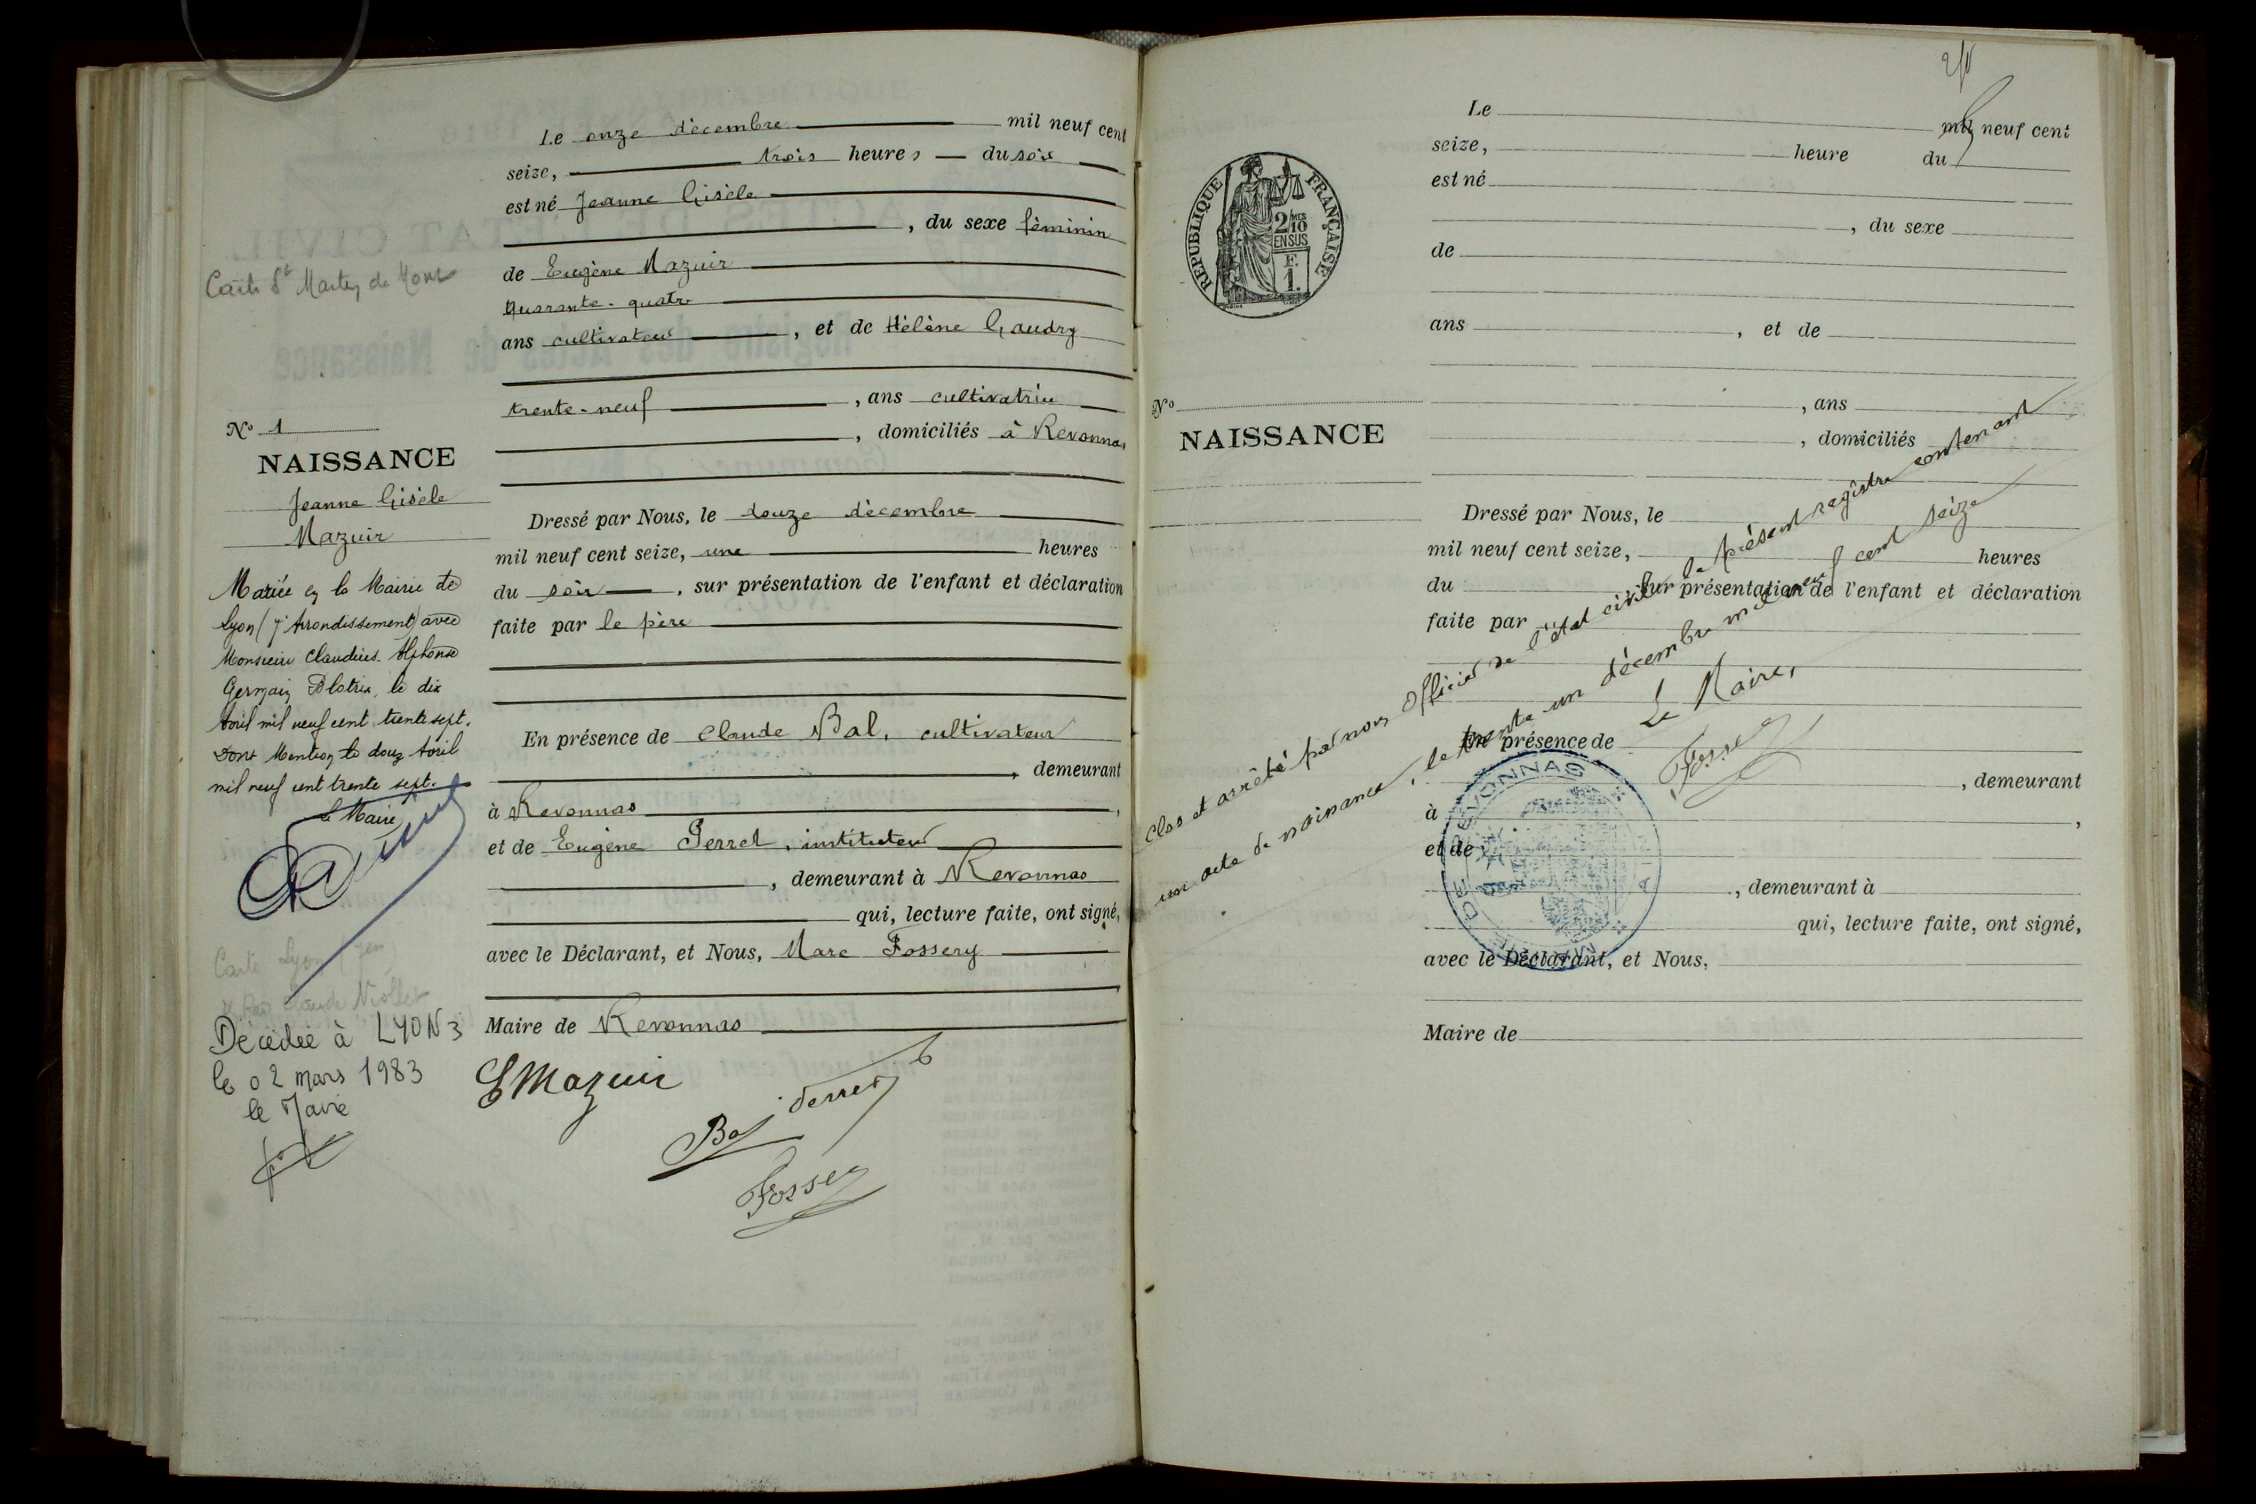 Le onze décembre mil neuf cent
seize, trois heures du soir
est né Jeanne Gisèle
, du sexe féminin
de Eugène Mazuir
quarante-quatre
ans cultivateur , et de Hélène Gaudry
trente-neuf , ans cultivatrice
, domiciliés à Revonnas
Dressé par Nous, le douze décembre
mil neuf cent seize, une heures
du soir , sur présentation de l'enfant et déclaration
faite par le père
En présence de Claude Bal, cultivateur
, demeurant
à Revonnas ,
et de Eugène Perret, instituteur
, demeurant à Revonnas
qui, lecture faite, ont signé,
avec le Déclarant, et Nous, Marc Fossery
Maire de Revonnas
E Mazuir
Perret
Bal
Fossery
Carte St Martin du Mont
No 1
NAISSANCE
Jeanne Gisèle
Mazuir
Mariée en la Mairie de
Lyon (7e Arrondissement) avec
Monsieur Claudius Alphonse
Germain Blatrix, le dix
Avril mil neuf cent trente sept.
Dont Mention le douze Avril
mil neuf cent trente sept.
Le Maire
Carte Lyon
Décédée à LYON 3
le 02 mars 1983
le Maire
Le mil neuf cent
seize, heure du
est né
, du sexe
de
ans , et de
, ans
, domiciliés
Dressé par Nous, le
mil neuf cent seize, heures
du , sur présentation de l'enfant et déclaration
faite par
En présence de
, demeurant
à ,
et de
, demeurant à
qui, lecture faite, ont signé,
avec le Déclarant, et Nous,
Maire de
RÉPUBLIQUE FRANÇAISE
2/10 MES
EN SUS
F.
1.
No
NAISSANCE
Clos et arrêté par nous Officier de l'état civil le présent registre contenant
un acte de naissance, le trente un décembre mil neuf cent seize
Le Maire,
Fossery
MAIRIE DE REVONNAS
AIN